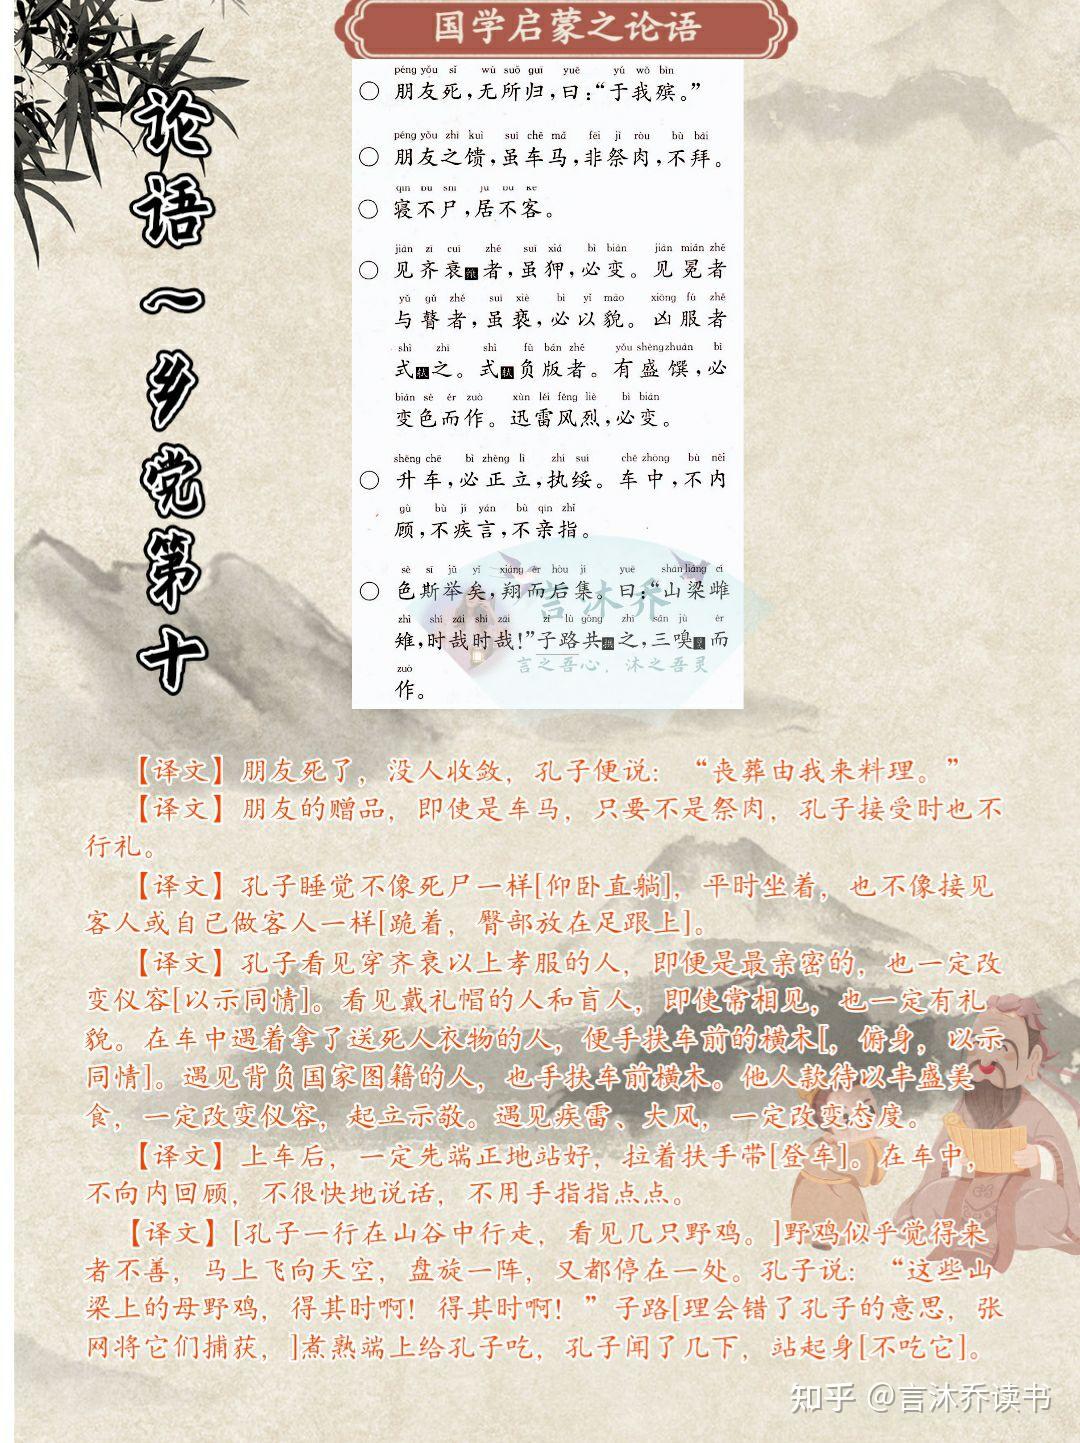 国学启蒙之论语
论语~乡党第十
péng yǒu sǐ wú suǒ guī yuē yú wǒ bìn
○ 朋友死,无所归,曰:“于我殡。”
péng yǒu zhī kuì suī chē mǎ fēi jì ròu bù bài
○ 朋友之馈,虽车马,非祭肉,不拜。
qǐn bù shī jū bù kè
○ 寝不尸,居不客。
jiàn zī cuī zhě suī xiá bì biàn jiàn miǎn zhě
○ 见齐衰缞者,虽狎,必变。见冕者
yǔ gǔ zhě suī xiè bì yǐ mào xiōng fú zhě
与瞽者,虽亵,必以貌。凶服者
shì zhī shì fù bǎn zhě yǒu shèng zhuàn bì
式轼之。式轼负版者。有盛馔,必
biàn sè ér zuò xùn léi fēng liè bì biàn
变色而作。迅雷风烈,必变。
shēng chē bì zhèng lì zhí suí chē zhōng bù nèi
○ 升车,必正立,执绥。车中,不内
gù bù jí yán bù qīn zhǐ
顾,不疾言,不亲指。
sè sī jǔ yǐ xiáng ér hòu jí yuē shān liáng cí
○ 色斯举矣,翔而后集。曰:“山梁雌
zhì shí zāi shí zāi zǐ lù gǒng zhī sān jù ér
雉,时哉时哉!”子路共拱之,三嗅而
zuò
作。
言沐乔
言之吾心,沐之吾灵
【译文】朋友死了，没人收敛，孔子便说：“丧葬由我来料理。”
【译文】朋友的赠品，即使是车马，只要不是祭肉，孔子接受时也不
行礼。
【译文】孔子睡觉不像死尸一样[仰卧直躺]，平时坐着，也不像接见
客人或自己做客人一样[跪着，臀部放在足跟上]。
【译文】孔子看见穿齐衰以上孝服的人，即便是最亲密的，也一定改
变仪容[以示同情]。看见戴礼帽的人和盲人，即使常相见，也一定有礼
貌。在车中遇着拿了送死人衣物的人，便手扶车前的横木[，俯身，以示
同情]。遇见背负国家图籍的人，也手扶车前横木。他人款待以丰盛美
食，一定改变仪容，起立示敬。遇见疾雷、大风，一定改变态度。
【译文】上车后，一定先端正地站好，拉着扶手带[登车]。在车中，
不向内回顾，不很快地说话，不用手指指点点。
【译文】[孔子一行在山谷中行走，看见几只野鸡。]野鸡似乎觉得来
者不善，马上飞向天空，盘旋一阵，又都停在一处。孔子说：“这些山
梁上的母野鸡，得其时啊！得其时啊！”子路[理会错了孔子的意思，张
网将它们捕获，]煮熟端上给孔子吃，孔子闻了几下，站起身[不吃它]。
知乎 @言沐乔读书